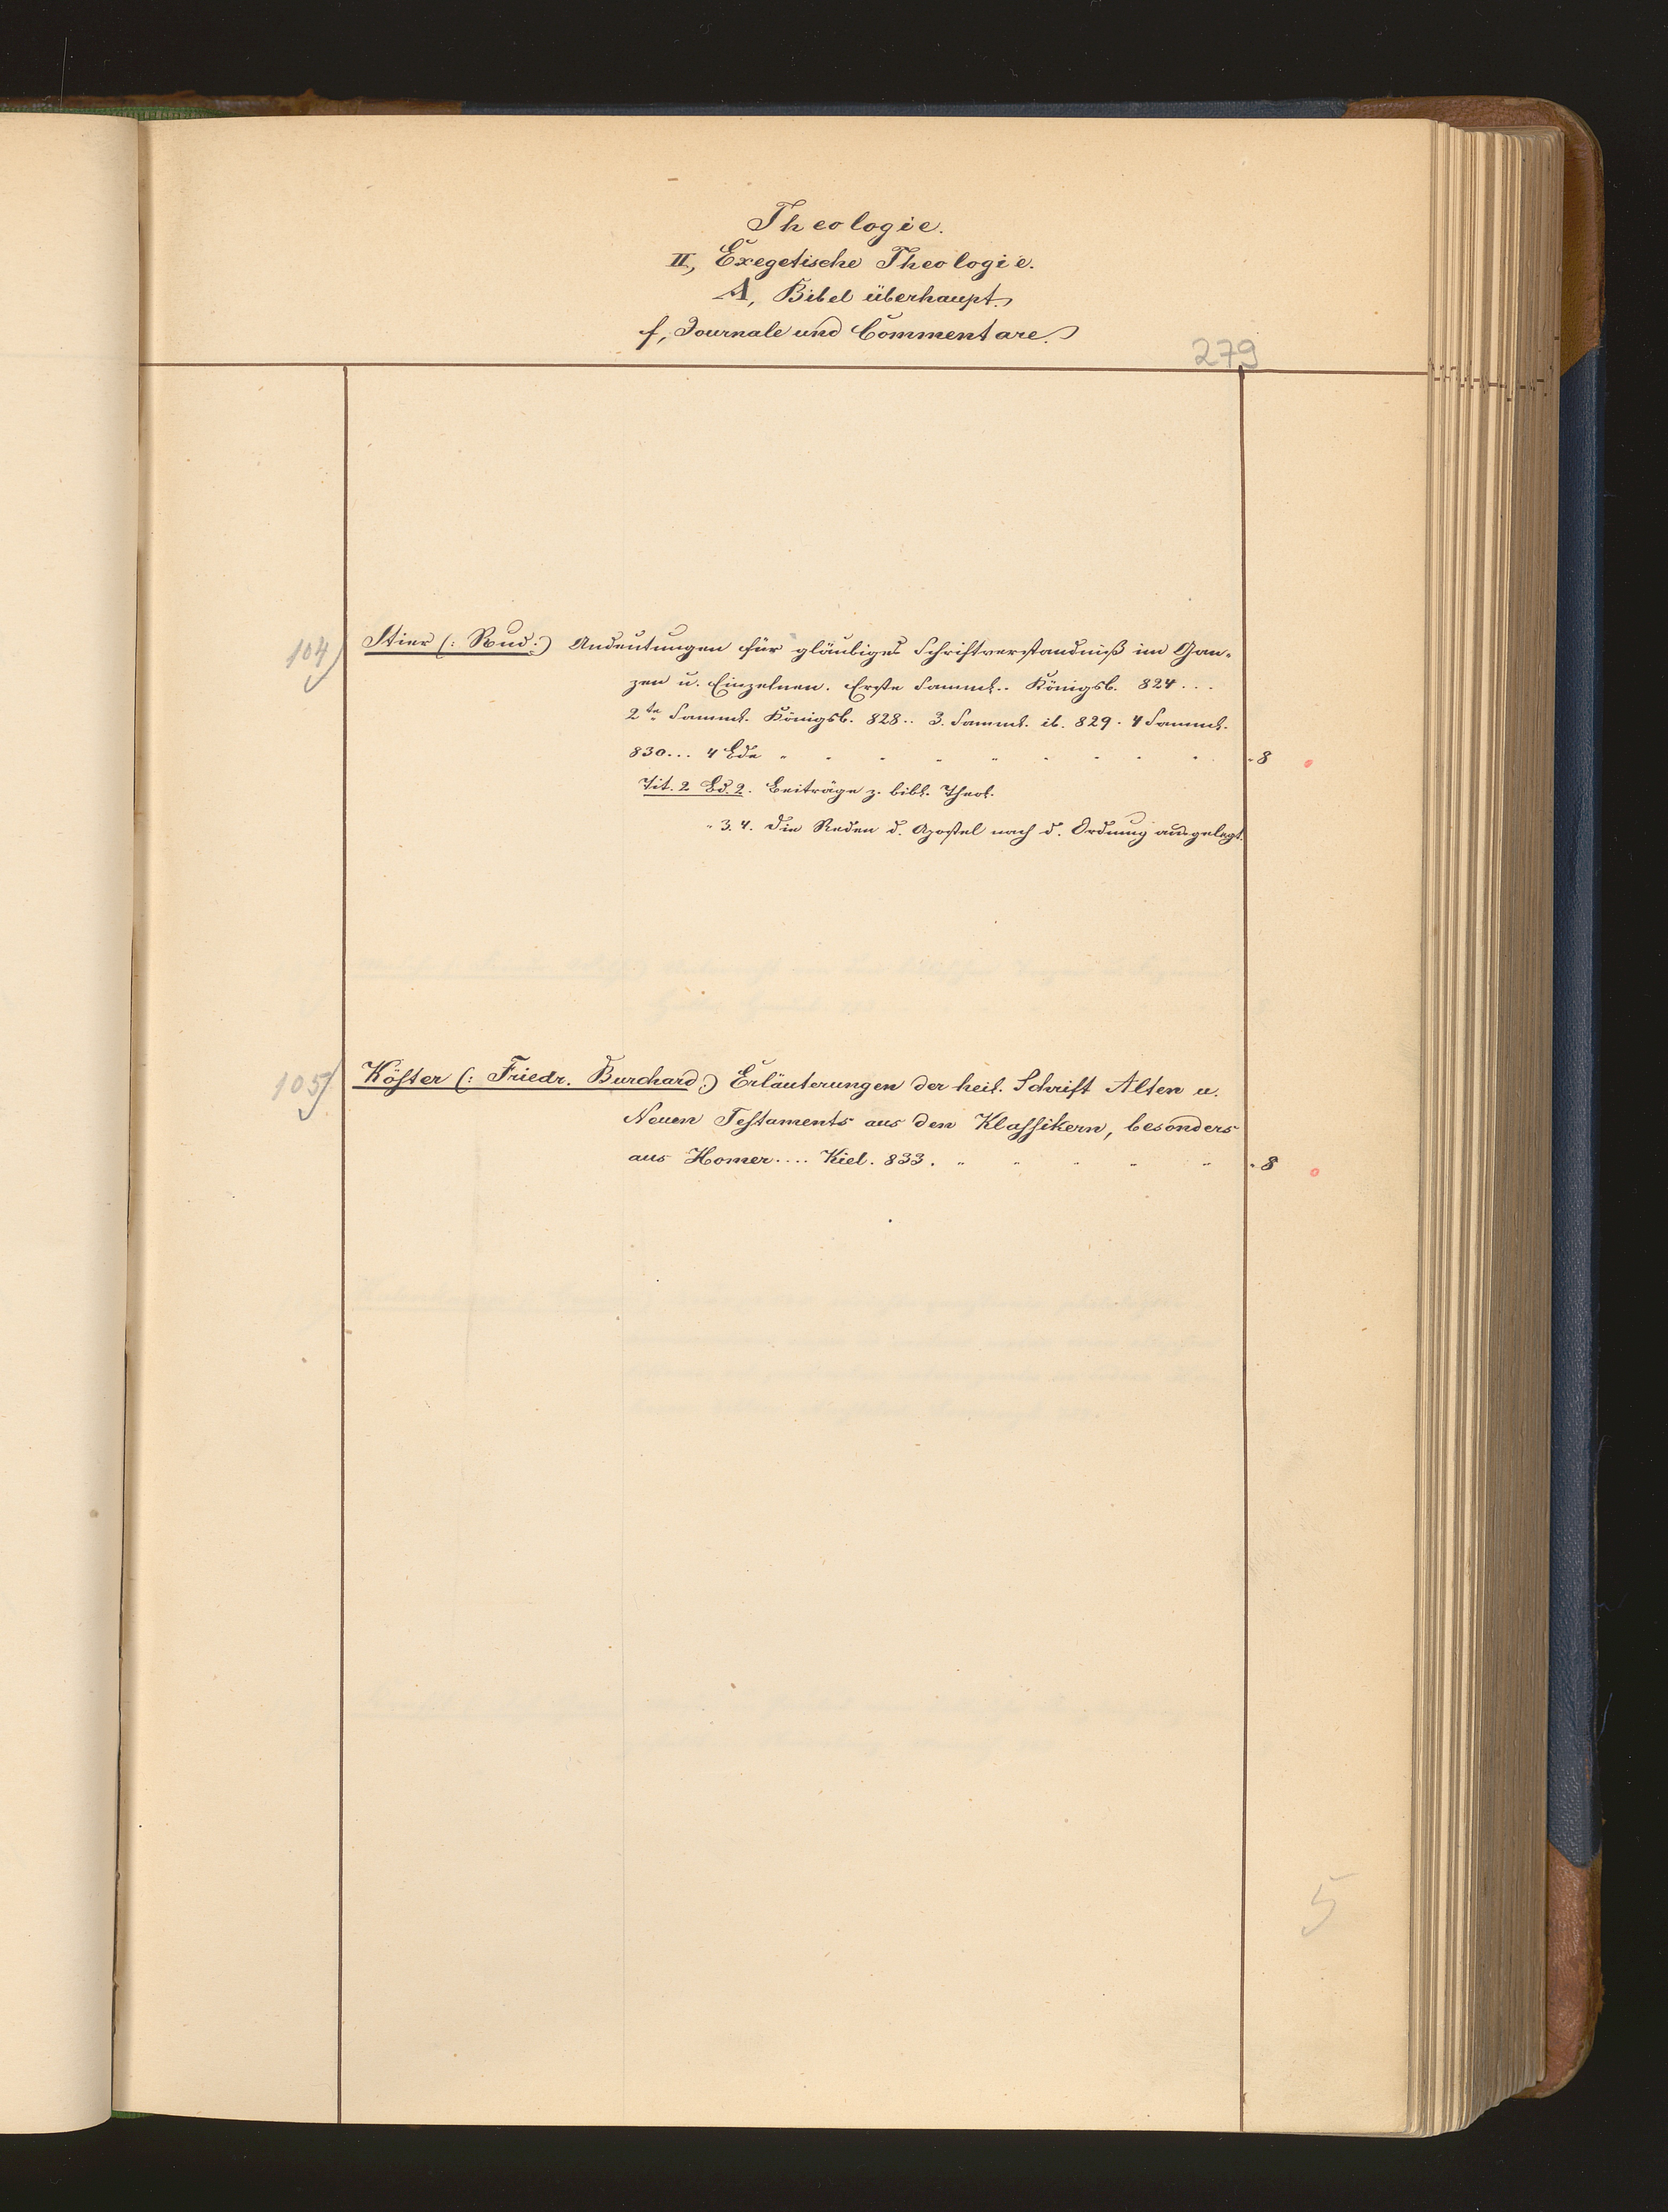 Theologie.
II, Exegetische Theologie.
A, Bibel überhaupt.
f, Journale und Commentare.
279
104) Stier (: Rud:) Andeutungen für gläubiges Schriftverständniß im Gan-
zen u. Einzelnen. Erste Samml.. Königsb. 824...
2te Samml. Königsb. 828.. 3. Samml. ib. 829. 4 Samml.
830... 4 Bde " " " " " " " " " "8
Tit. 2 Bd. 2. Beiträge z. bibl. Theol.
" 3. 4. Die Reden d. Apostel nach d. Ordnung ausgelegt.
105) Köster (: Friedr. Burchard:) Erläuterungen der heil. Schrift Alten u.
Neuen Testaments aus den Klassikern, besonders
aus Homer.... Kiel. 833. " " " " " "8
5